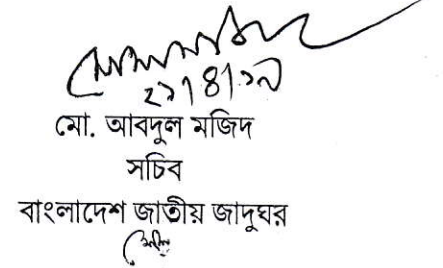 ২১।৪।১৯
মো. আবদুল মজিদ
সচিব
বাংলাদেশ জাতীয় জাদুঘর